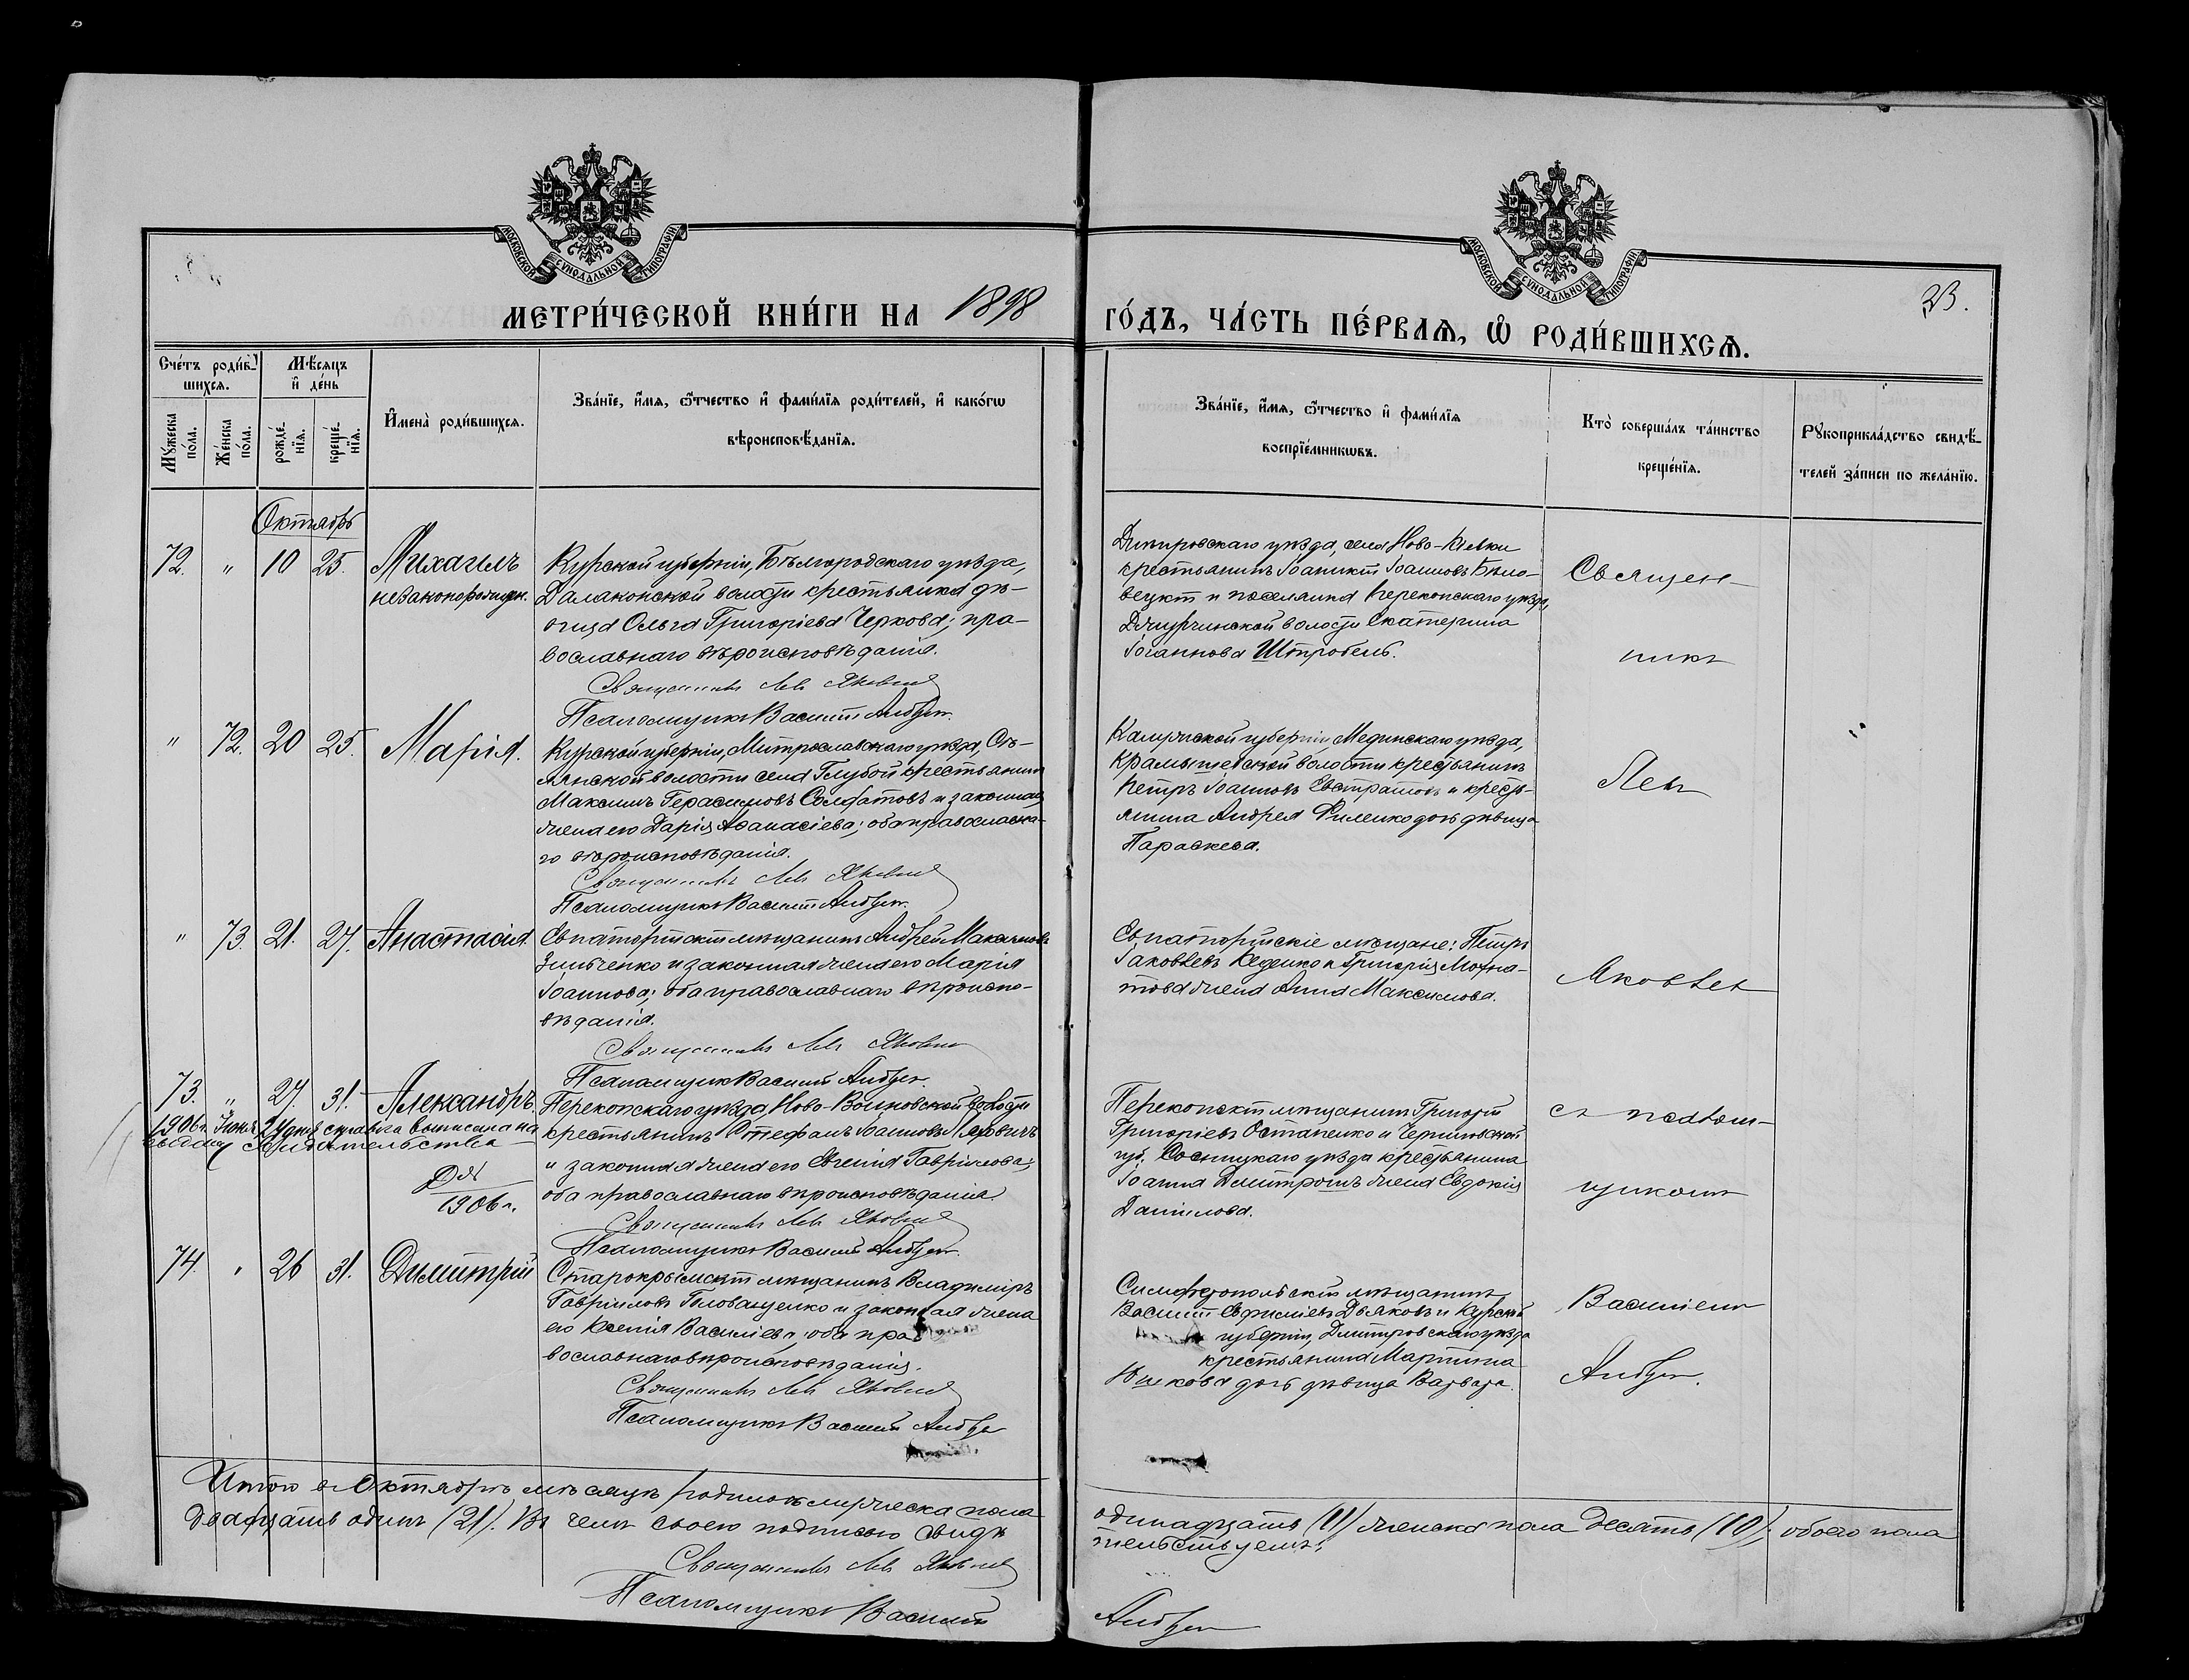 МОСКОВСКОЙ СѴНОДАЛЬНОЙ ТИПОГРАФІИ
МОСКОВСКОЙ СѴНОДАЛЬНОЙ ТИПОГРАФІИ
МЕТРИ́ЧЕСКОЙ КНИ́ГИ НА 1898 ГО́ДЪ, ЧА́СТЬ ПЕ́РВАѦ, Ѡ҆ РОДИ́ВШИХСѦ.
23.
Сче́тъ роди́в-
шихсѧ.
Мꙋжеска по́ла.
Же́нска по́ла.
Мѣ́сѧцъ
и҆ де́нь
рожде́-
нїѧ.
креще́-
нїѧ.
И҆мена̀ роди́вшихсѧ.
Зва́нїе, и҆́мѧ, ѻ҆́тчество и҆ фами́лїѧ роди́телей, и҆ како́гѡ
вѣроисповѣ́данїѧ.
Зва́нїе, и҆́мѧ, ѻ҆́тчество и҆ фами́лїѧ
воспрїе́мникѡвъ.
Кто̀ соверша́лъ та́инство
креще́нїѧ.
Рꙋкоприкла́дство свидѣ́-
телей за́писи по жела́нїю.
Октябрь
72. " 10 25. Михаилъ
незаконорожден.
Курской губерніи, Бѣлгородскаго уѣзда,
волости крестьянка дѣ-
вица Ольга Григоріева Черкова; пра-
вославнаго вѣроисповѣданія.
Священникъ Левъ Яковлев
Псаломщикъ Василій
Днѣпровскаго уѣзда, села Ново-Кіевки
крестьянинъ Іоанникій Іоанновъ Бѣло-
вецкій и поселянка Перекопскаго уѣзда,
Джурчинской волости Екатерина
Іоганнова Штробель.
Священ-
никъ
" 72. 20 25. Марія.
Курской губерніи, уѣзда, Сѣ-
волости села Глубой крестьянинъ
Максимъ Герасимовъ Солдатовъ и законная
жена его Дарія Аѳанасіева; оба православна-
го вѣроисповѣданія.
Священникъ Левъ Яковлев
Псаломщикъ Василій
Калужской губерніи, Медынскаго уѣзда,
волости крестьянинъ
Петръ Іоанновъ Евстратовъ и кресть-
янина Андрея Филенко дочь дѣвица
Параскева.
Левъ
" 73. 21. 27. Анастасія.
Евпаторійскій мѣщанинъ Андрей Максимовъ
Зинченко и законная жена его Марія
Іоаннова; оба православнаго вѣроиспо-
вѣданія.
Священникъ Левъ Яковлев
Псаломщикъ Василій
Евпаторійскіе мѣщане: Петръ
Іаковлевъ и Григорія
жена Анна Максимова.
Яковлев
73. " 27. 31. Александръ.
1906 г. Іюня 24 дня справка выписана на
выдачу свидѣтельства
1906 г.
Перекопскаго уѣзда, Ново-Воиновской волости
крестьянинъ Стефанъ Іоанновъ Ляховичъ
и законная жена его Евгенія Гавріилова;
оба православнаго вѣроисповѣданія.
Священникъ Левъ Яковлев
Псаломщикъ Василій
Перекопскій мѣщанинъ Григорій
Григоріевъ Остапенко и Черниговской
губ. Сосницкаго уѣзда крестьянина
Іоанна жена Евдокія
Даніилова.
съ псалом-
щикомъ
74. " 26 31. Димитрій
Старокрымскій мѣщанинъ Владиміръ
Гавріиловъ Голованенко и законная жена
его Ксенія Василіева; оба пра
вославнаго вѣроисповѣданія.
Священникъ Левъ Яковлев
Псаломщикъ Василій
Симферопольскій мѣщанинъ
Василій Евфиміевъ Дьяковъ и Курской
губерніи, Дмитровскаго уѣзда
крестьянина Мартина
дочь дѣвица Варвара.
Василіемъ
Итого въ Октябрѣ мѣсяцѣ родилось мужеска пола одинадцать (11) женска пола десять (10); обоего пола
двадцать одинъ (21). Въ чемъ своею подписью свидѣтельствуемъ:
Священникъ Левъ Яковлев
Псаломщикъ Василій